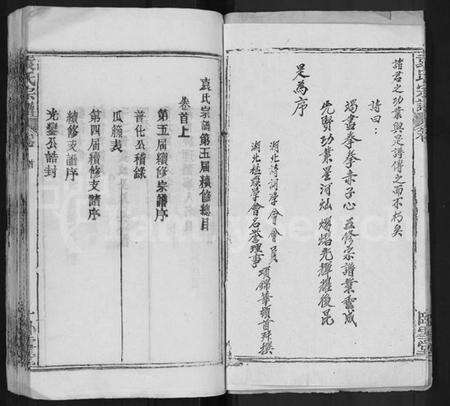 諸君之功業與是譜傳之而不朽矣
詩曰：
竭書拳拳赤子心五修宗譜業書成
先賢功業星河灿熠熠光輝耀後昆
是為序
湖北詩詞學會會員
湖北楹聯學會名誉理事
頓首拜撰
袁氏宗譜第五届續修總目
卷首上
第五届續修宗譜序
普化公積錄
瓜瓞表
第四届續修支譜序
續修支譜序
光鑒公誥封
袁氏宗譜
卧雪堂